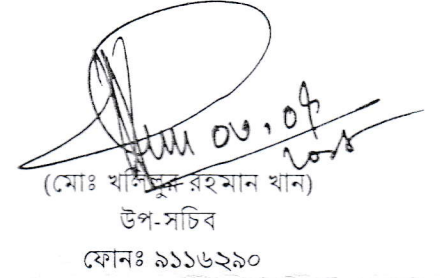 ০৩.০৮
(মোঃ খলিলুর রহমান খান)
উপ-সচিব
ফোনঃ ৯১১৬২৯০